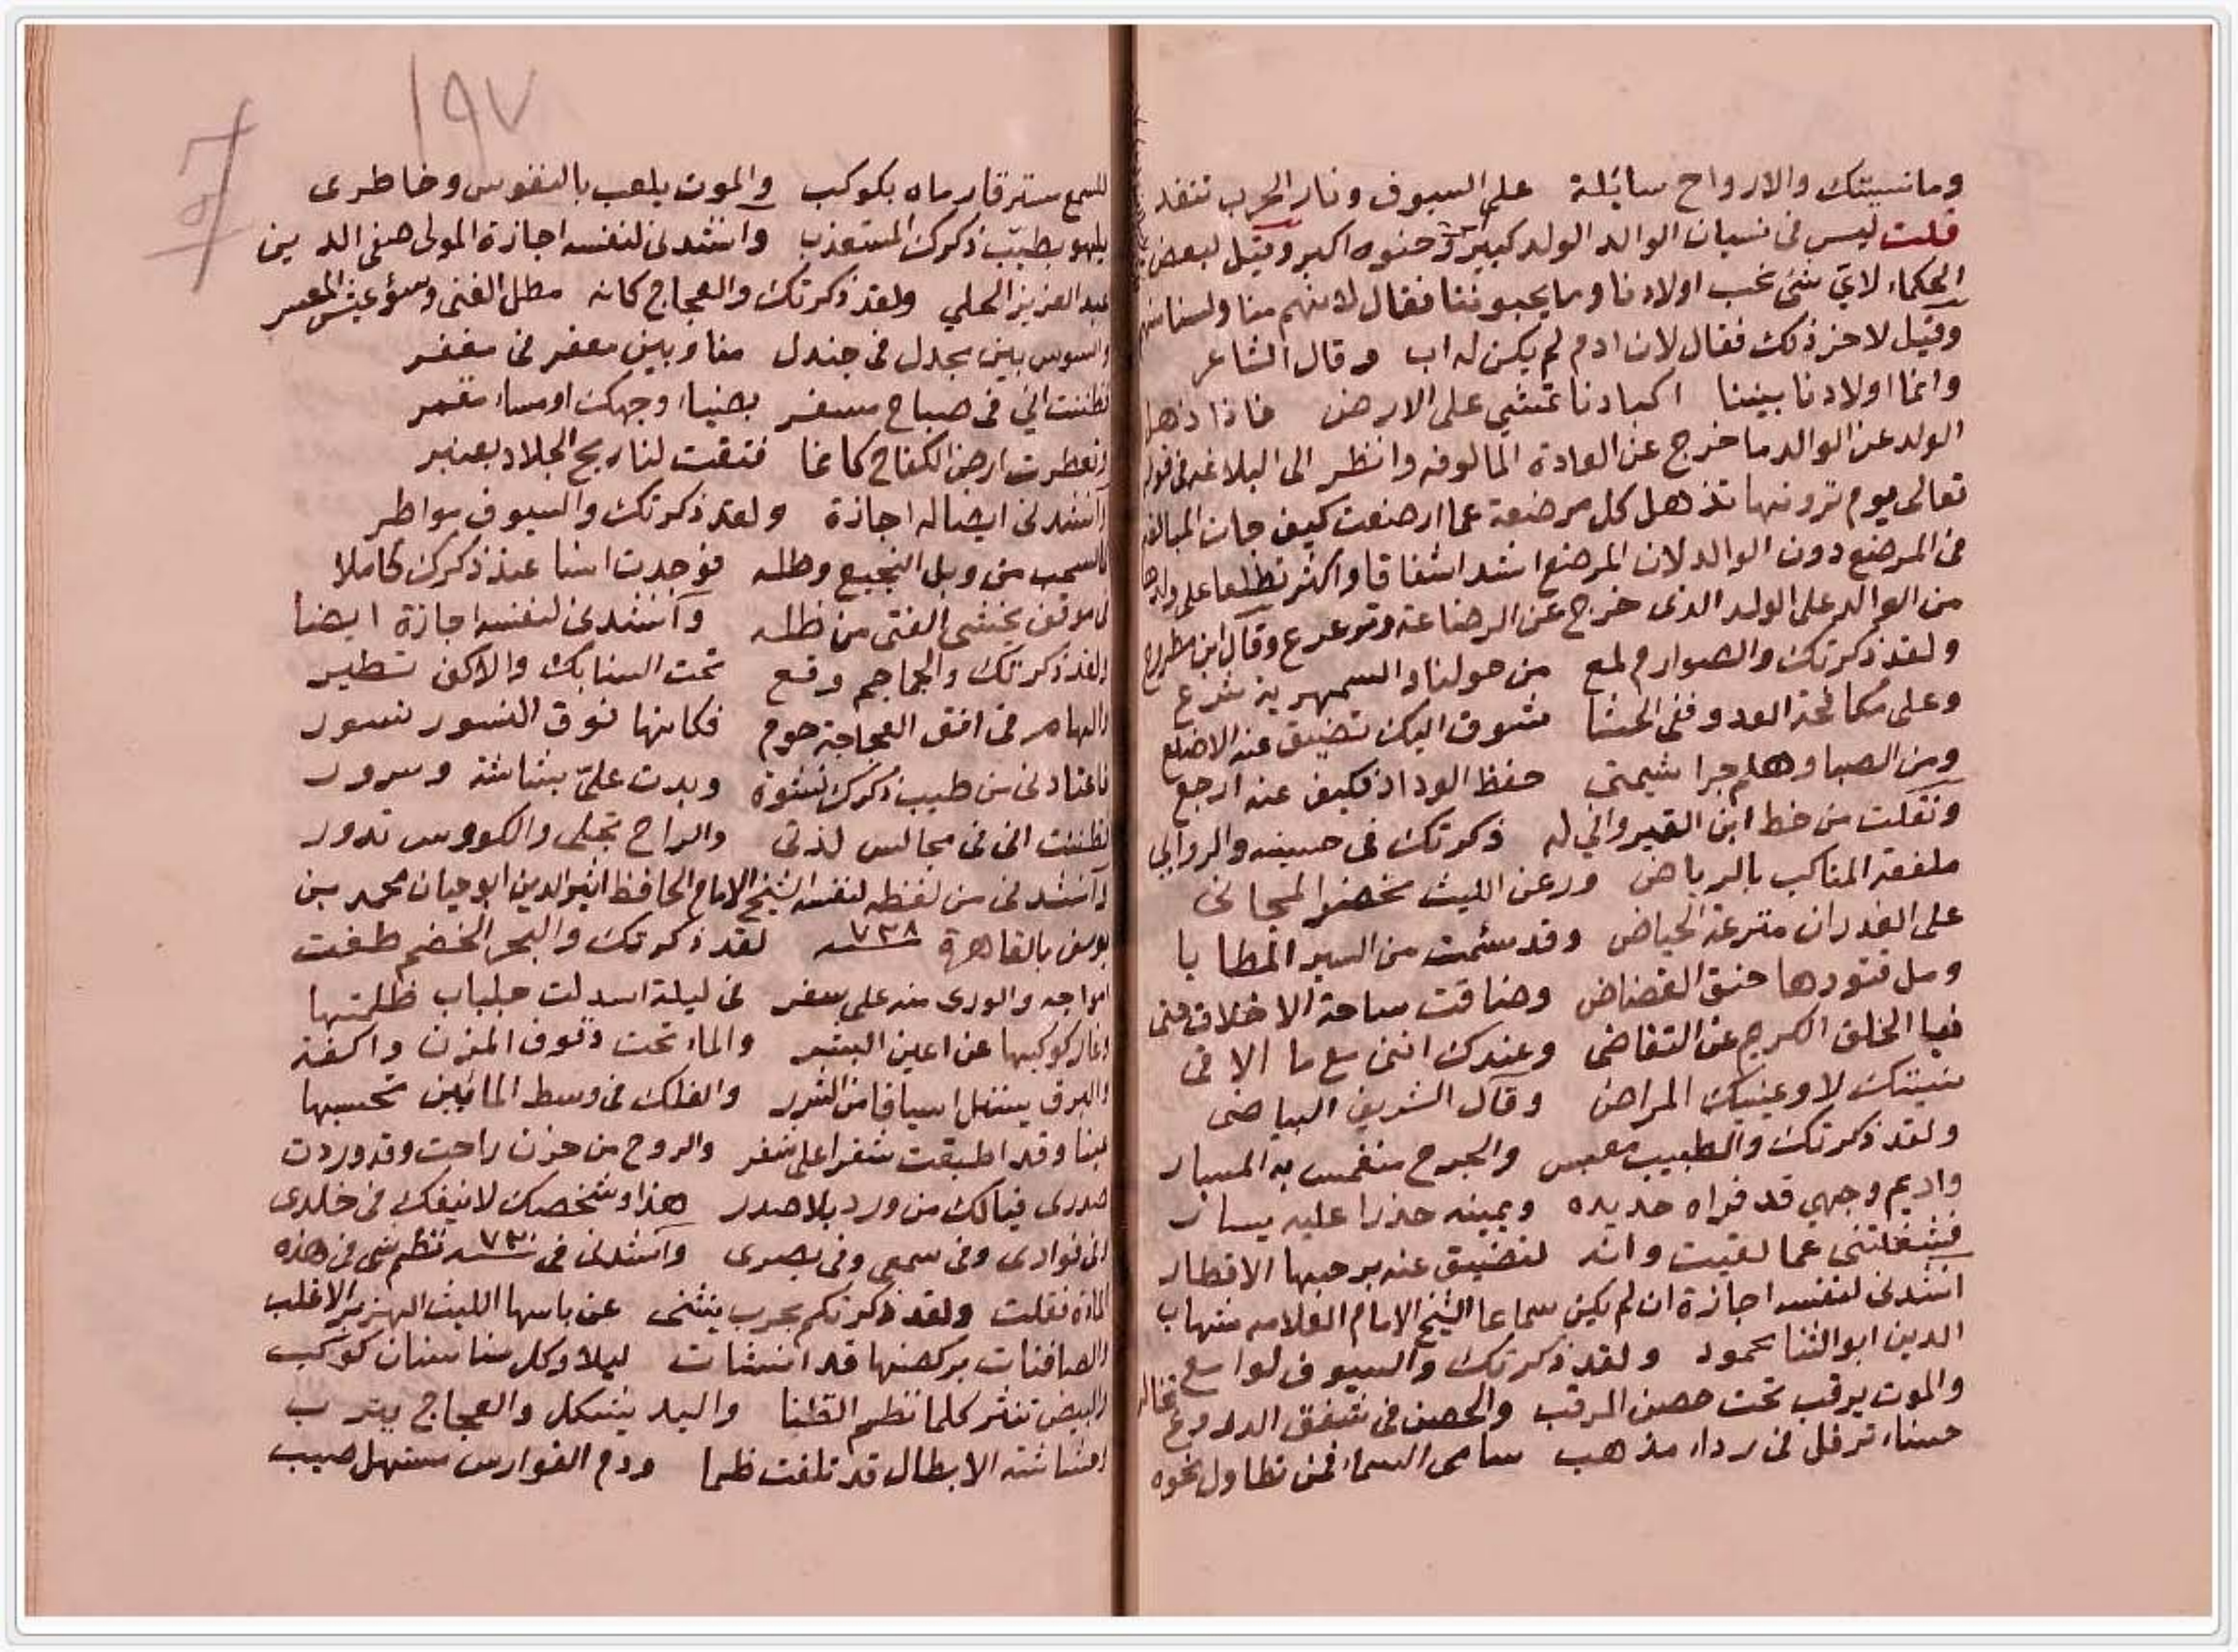 وما نسيتك والارواح سائلة على السيوف ونار الحرب تتقد
قلت ليس في نسيان الوالد الولد كبير وحنوه اكبر وقيل لبعض
الحكماء لاي شئ نحب اولادنا وما يحبوننا فقال لانهم منا ولسنا منهم
وقيل لاخر ذلك فقال لان ادم لم يكن له اب وقال الشاعر
وانما اولادنا بيننا اكبادنا تمشي على الارض فاذا ذهل
الولد عن الوالد ما خرج عن العادة المالوفه وانظر الى البلاغه في قوله
تعالى يوم ترونها تذهل كل مرضعة عما ارضعت كيف جات المبالغه
في المرضع دون الوالد لان المرضع اشد اشفاقا واكثر تطلعا على ولدها
من الوالد على الولد الذى خرج عن الرضاعة وترعرع وقال ابن مطروح
ولقد ذكرتك والصوارم لمع من حولنا والسمهرية شرع
وعلى مكافحة العدو ففى الحشا شوق اليك تضيق عنه الاضلع
ومن الصبا وهلم جرا شيمتى حفظ الوداد فكيف عنه ارجع
ونقلت من خط ابن القيرواني له ذكرتك فى حسينه والروابي
ملفقة المناكب بالرياض ورعن الليث مخضر المجانى
على الغدران مترعة الحياض وقد سئمت من السير المطايا
ومل قتودها خنق الغضاض وضاقت ساحة الاخلاق حتى
فيا الخلق الكريم عن التغاضى وعندك اننى مع ما الاقى
نسيتك لا وعينيك المراض وقال الشريف البياضى
ولقد ذكرتك والطبيب معبس والجرح منغمس به المسبار
واديم وجهي قد فراه حديده ويمينه حذرا عليه يسار
فشغلتنى عما لقيت وانه لتضيق عنه برحبها الاقطار
انشدنى لنفسه اجازة ان لم يكن سماعا الشيخ الامام العلامه شهاب
الدين ابو الثنا محمود ولقد ذكرتك والسيوف لوامع
والموت يرقب تحت حصن المرقب والحصن فى شفق الدروع تخاله
حسناء ترفل فى رداء مذهب سامى السماء فمن تطاول نحوه
١٩٧
للسمع مسترقا رماه بكوكب والموت يلعب بالنفوس وخاطرى
يلهو بطيب ذكرك المستعذب وانشدنى لنفسه اجازة المولى صفى الدين
عبد العزيز الحلي ولقد ذكرتك والعجاج كانه مطل الغنى وسوء عيش المعسر
والشوس بين مجدل فى جندل منا وبين معفر فى مغفر
فظننت اني فى صباح مسفر بضياء وجهك او مساء مقمر
وتعطرت ارض الكفاح كانما فتقت لنا ريح الجلاد بعنبر
وانشدنى ايضا له اجازة ولقد ذكرتك والسيوف مواطر
كالسحب من وبل النجيع وطله فوجدت انسا عند ذكرك كاملا
فى موقف يخشى الفتى من ظله وانشدنى لنفسه اجازة ايضا
ولقد ذكرتك والجماجم وقع تحت السنابك والاكف تطير
والهام فى افق العجاجة حوم فكانها فوق النسور نسور
فاعتادنى من طيب ذكرك نشوة وبدت علىّ بشاشة وسرور
فظننت انى فى مجالس لذتى والراح تجلى والكووس تدور
وانشدنى من لفظه لنفسه الشيخ الامام الحافظ اثير الدين ابو حيان محمد بن
يوسف بالقاهرة سنه ٧٣٨ لقد ذكرتك والبحر الخضم طغت
امواجه والورى منه على سفر فى ليلة اسدلت جلباب ظلمتها
وغار كوكبها عن اعين البشر والماء تحت وفوق المزن واكفة
والبرق يستل اسيافا من الشرر والفلك فى وسط المائين تحسبها
عينا وقد اطبقت شفرا على شفر والروح من حزن راحت وقد وردت
صدرى فيا لك من ورد بلا صدر هذا وشخصك لا ينفك فى خلدى
وفى فوادى وفى سمعى وفى بصرى وانشدنى فى سنه ٧٣٠ نظم شئ فى هذه
المادة فقلت ولقد ذكرتكم بحرب ينثنى عن باسها الليث الهزبر الاغلب
والصافنات بركضها قد انشات ليلا وكل سنا سنان كوكب
والبيض تنثر كلما نظم القنا والنبل يشكل والعجاج يترب
وحشاشة الابطال قد تلفت ظما ودم الفوارس مستهل صيب